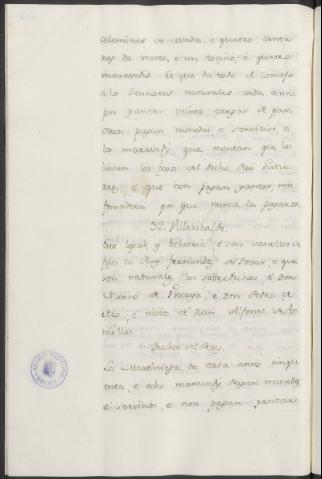 celemines de cevada, e quatro canta
ras de mosto, e un tocino, e quatro
maravedis e que da todo el Consejo
a los Sennores naturales cada anno
por yantar veinte cargas de pan
otros pagan monedas, e servicios, a
los maravedis que montan que los
lievan los fijos del dicho Rui Gutie
rrez, e que non pagan yantar, nin
fonsadera por que nunca la pagaron
52. Villaxibaldo.
Este logar es behetria, e son vasallos de
fijo de Ruy Fernandez de Tovar, e que
son naturales los sobredichos, e Don
Nunno de Vizcaya, e don Pedro de
e nietos de Juan Alfonso de
Derechos del Rey.
La Martiniega de cada anno cinqu
enta, e ocho maravedis, e pagan monedas
e servicios, e non pagan yantares,